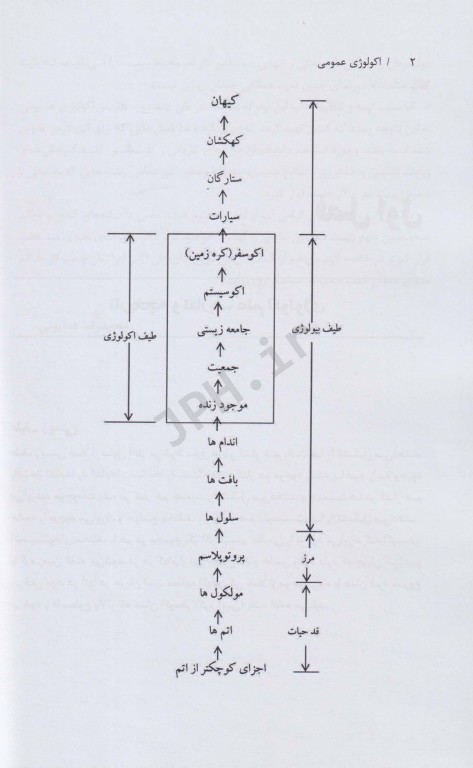 ۲ / اکولوژی عمومی
کیهان
کهکشان
ستارگان
سیارات
اکوسفر(کره زمین)
اکوسیستم
جامعه زیستی
طیف بیولوژی
طیف اکولوژی
جمعیت
موجود زنده
اندام ها
بافت ها
سلول ها
پروتوپلاسم
مرز
مولکول ها
اتم ها
قد حیات
اجزای کوچکتر از اتم
JPH.ir